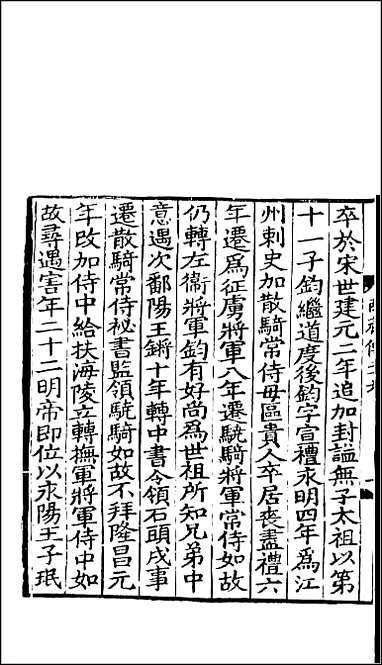 卒於宋世建元二年追加封謚無子太祖以第
十一子鈞繼道度後鈞字宣禮永明四年爲江
州刺史加散騎常侍母區貴人卒居喪盡禮六
年遷爲征虜將軍八年遷驍騎將軍常侍如故
仍轉左衛將軍鈞有好尚爲世祖所知兄弟中
意遇次鄱陽王鏘十年轉中書令領石頭戍事
遷散騎常侍祕書監領驍騎如故不拜隆昌元
年改加侍中給扶海陵立轉撫軍將軍侍中如
故尋遇害年二十二明帝即位以永陽王子珉